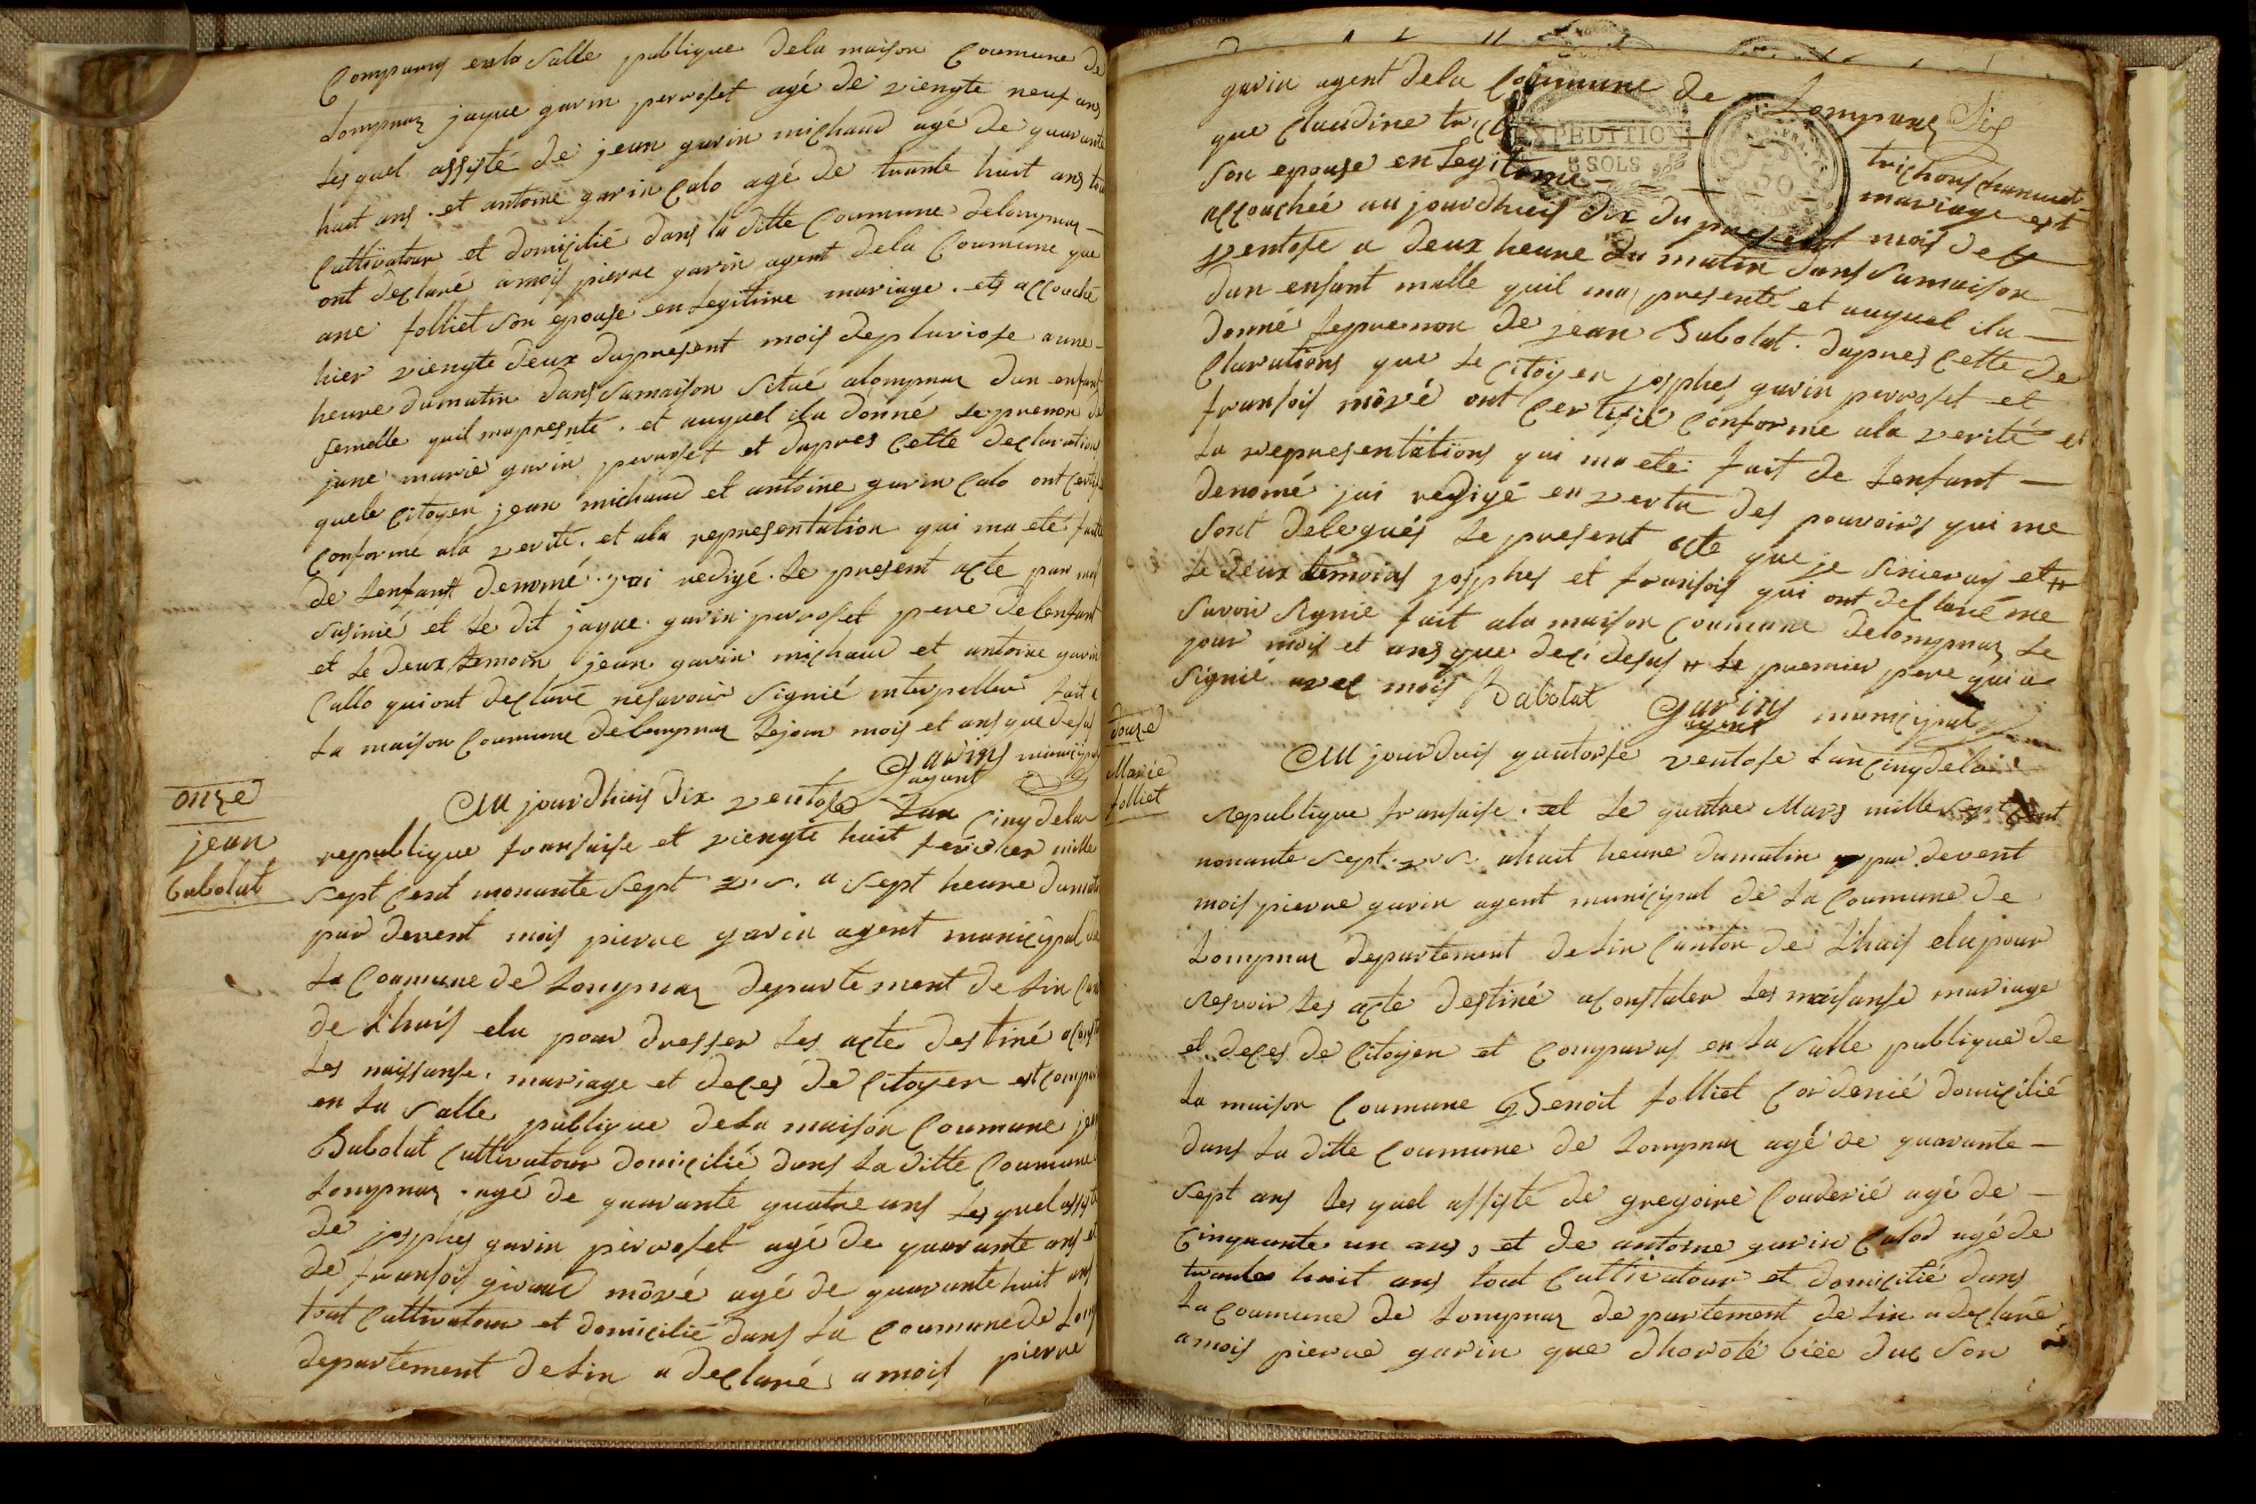 Comparus en la salle publique dela maison Coumune de
Lompnaz jaque garin perroset agé de viengte neuf ans
lesquel assisté de jean garin michaud agé de quarante
huit ans . et antoine garin Calo agé de trante huit ans tou
Cultivatour et domicilié dans la ditte Coumune delompnaz
ont declaré amois pierre garin agent dela Coumune que
ane folliet son epouse en legitime mariage . et accouché
hier viengte deux dupresent mois depluviose a une
heure dumatin dans samaison situé alompnaz dun enfant
femelle quil mapresnté . et auquel ila donné leprenon de
jane marie garin perroset et dapres Cette declaration
quele Citoyen jean michaud et antoine garin Calo ont Certifi
Conforme ala verité . et ala representation qui ma eté faite
de lenfant denomé . jai redigé . le present acte par moi
susinié et le dit jaque . garin perroset pere delenfant
et le deux temoin jean garin michaud et antoine garin
Callo qui ont declaré nesavoir signié interpeller fait a
la maison Coumune delompnaz lejour mois et ans que desus
garin municipal
agant
onze
jean
babolat
Au jourdhuis dix ventose Lan Cinq dela
republique fransaise et viengte huit fevrier mille
sept Cent nonante sept v. s. a sept heure dumati
par devent mois pierre garin agent municipal de
la Coumune de Lompnaz departement de lin Can
de Lhuis elu pour dresser les acte destiné aCons
les naissanse . mariage et deces de Citoyen est compa
en la salle publique dela maison Coumune jean
Babolat Cultivatour domicilié dans la ditte Coumune
Lompnaz . agé de quarante quatre ans lesquel assisté
de josphes garin perroset agé de quarante ans et
de fransois giraud môré agé de quarante huit ans
tout Cultivatour et domicilié dans la Coumune de Lomp
departement de lin a declaré amois pierre
garin agent dela Coumune de Lompnaz
que Claudine
EXPEDITION
8 SOLS
50
son epouse en legitime mariage est
accouchée au jourdhuis dix du present mois de
ventose a deux heure du matin dans samaison
dun enfant malle quil ma presenté et auquel ila
donné leprenon de jean Babolat . dapres Cette de
Clarations que le Citoyen josphes garin perroset et
fransois môré ont Certifié Conforme ala verité et
la representations qui ma eté fait de lenfant
denomé jai redigé en vertu des pouvoirs qui me
sont delegués le present acte que je sinierais et #
le deux temoins josphes et fransois qui ont declaré me
savoir signié fait ala maison Coumune delompnaz le
jour mois et ans que deci desus # le premier pere qui a
signié avec mois Babolat garin municipal
agent
douze
Marie
folliet
Au jourduis quatorse ventose Lan Cinq dela
republique fransaise . et le quatre Mars mille sept Cent
nonante sept. v. s. ahuit heure dumatin par devent
mois pierre garin agent municipal de la Coumune de
Lompnaz departement de lin Canton de Lhuis elu pour
resevoir les acte destiné aConstater les naisanse mariage
et deces de Citoyen et Comparus en la salle publique de
la maison Coumune Benoit folliet Cordenié domicilié
dans la ditte Coumune de Lompnaz agé de quarante
sept ans les quel assisté de gregoire Couderié agé de
Cinquante un ans, et de antoine garin Calod agé de
trante huit ans tout Cultivatour et domicilié dans
la Coumune de Lompnaz departement de lin a declaré
amois pierre garin que dhoroté son